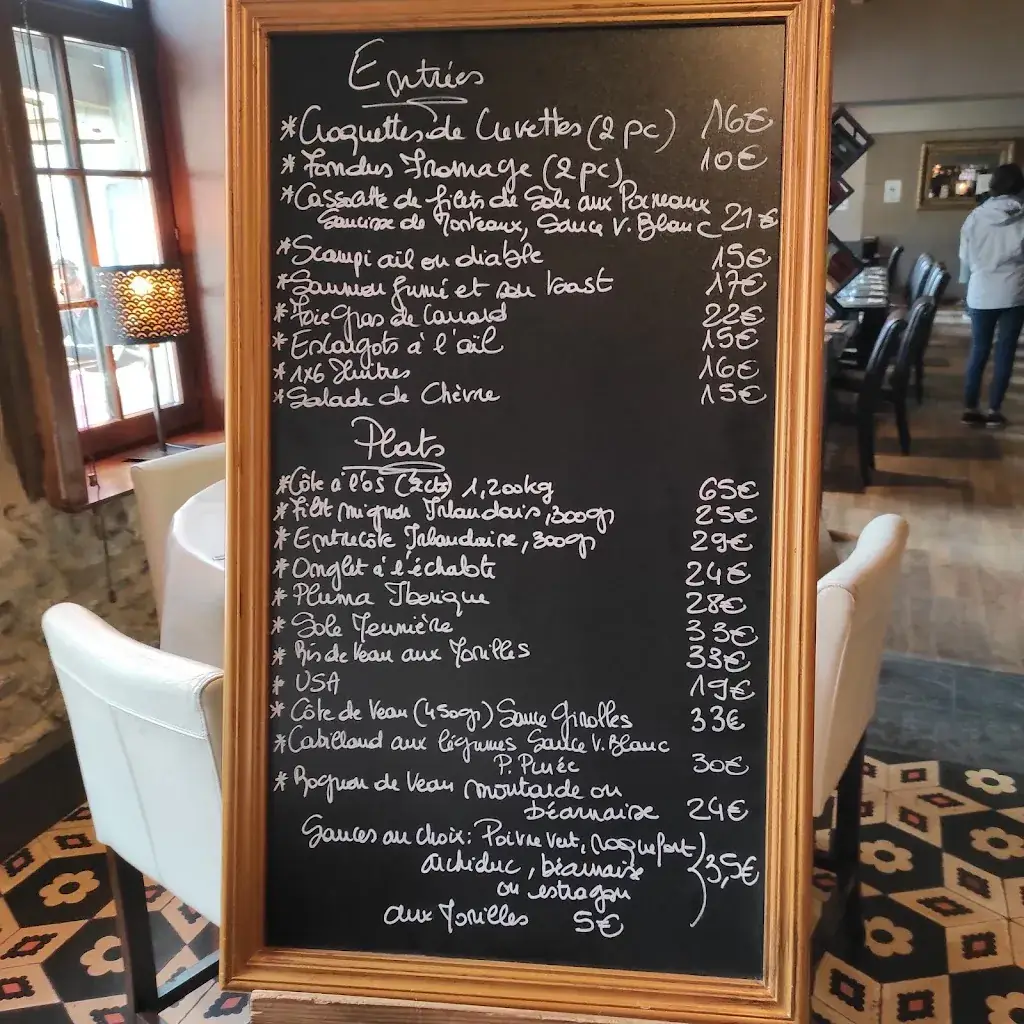 Entrées
* Croquettes de Crevettes (2 pc) 16€
* Fondus Fromage (2 pc) 10€
* Cassolette de filets de Sole aux Poireaux
Saucisse de Morteaux, Sauce V. Blanc 21€
* Scampi ail ou diable 15€
* Saumon fumé et son toast 17€
* Foie Gras de Canard 22€
* Escargots à l'ail 15€
* 1x6 Huîtres 16€
* Salade de Chèvre 15€
Plats
* Côte à l'os (2cts) 1,200kg 65€
* Filet mignon Irlandais, 300gr 25€
* Entrecôte Irlandaise, 300gr 29€
* Onglet à l'échalote 24€
* Pluma Iberique 28€
* Sole Meunière 33€
* Ris de Veau aux Morilles 33€
* USA 19€
* Côte de Veau (450gr) Sauce Girolles 33€
* Cabillaud aux légumes Sauce V. Blanc
P. Purée 30€
* Rognon de Veau moutarde ou
béarnaise 24€
Sauces au choix: Poivre Vert, Roquefort,
archiduc, béarnaise 3,5€
ou estragon
aux Morilles 5€